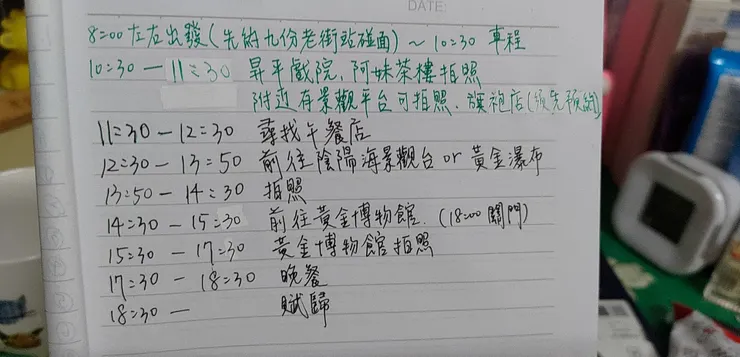 DATE:
8:00左右出發(先約九份老街站碰面)~10:30 車程
10:30 — 11:30 昇平戲院、阿妹茶樓拍照
附近有景觀平台可拍照、旗袍店(須先預約)
11:30 — 12:30 尋找午餐店
12:30 — 13:50 前往陰陽海景觀台 or 黃金瀑布
13:50 — 14:30 拍照
14:30 — 15:30 前往黃金博物館.(18:00關門)
15:30 — 17:30 黃金博物館拍照
17:30 — 18:30 晚餐
18:30 — 賦歸